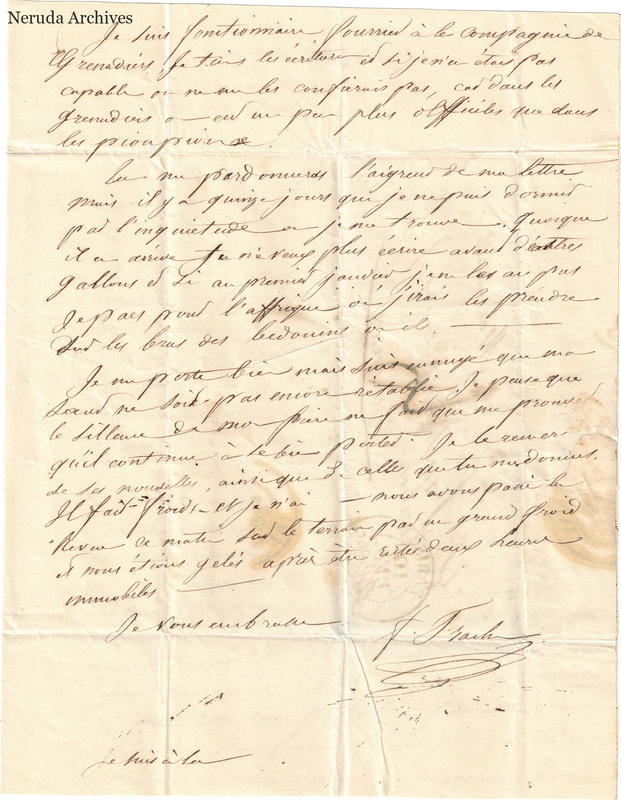 Neruda Archives
Je suis fonctionnaire fourrier à le compagnie de
Grenadiers Je tiens les écriture et si je n'en étais pas
capable on ne me les confierais pas, car dans les
Grenadiers on est un peu plus difficiles que dans
les pioupioux
tu me pardonneras l'aigreur de ma lettre
mais il y a quinze jours que je ne puis dormir
par l'inquietude ou je me trouve. Quoique
il en arrive je n'e veux plus écrire avant d'être
gallons et si au premier janvier je ne les ai pas
Je pars pour l'affrique où j'irais les prendre
sur les bras des bedouins
Je me porte bien mais suis ennuyé que ma
sœur ne soit pas encore rétablie. Je pense que
le sillence de mon frère ne fait que me prouver
qu'il continue à se bien porter. Je le remer-
de ses nouvelles, ainsi que de celles que tu me donnes.
Il fait froid et je n'ai nous avons passé la
Revue ce matin sur le terrain par un grand froid
et nous étions gelés après être restés deux heures
immobiles
Je vous embrasse
Je suis à la